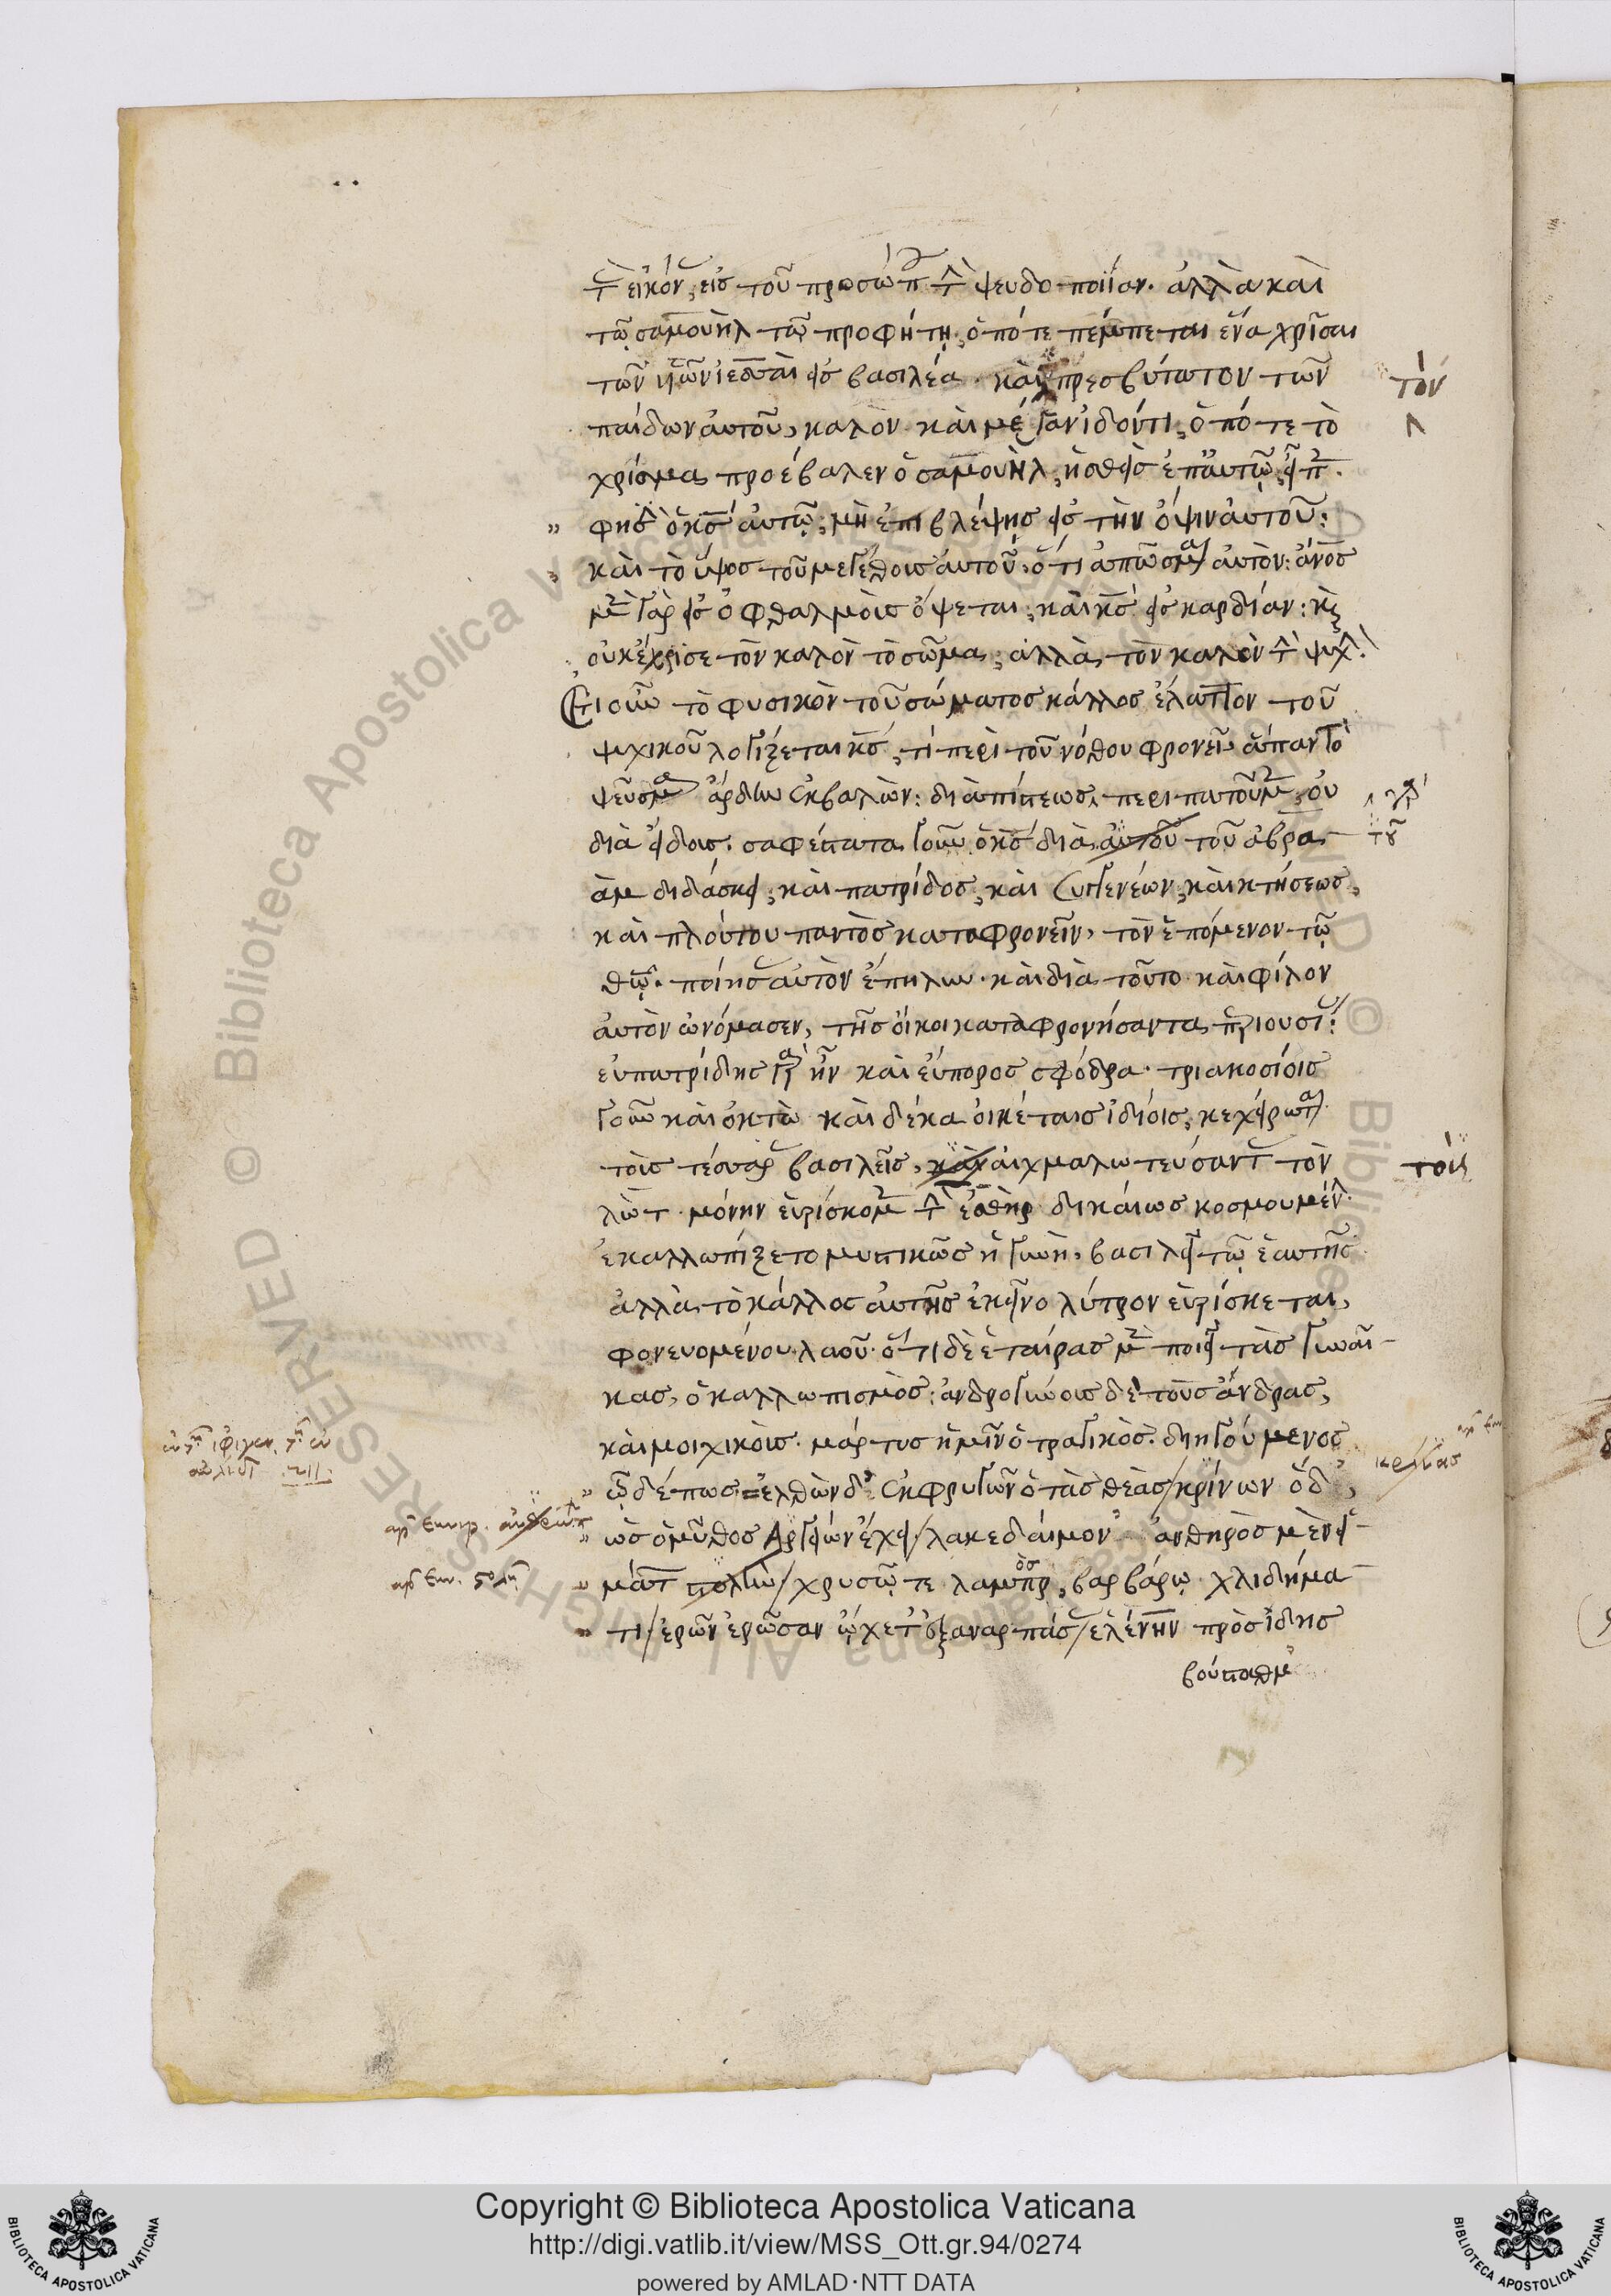 τὰς εἰκόνας, εἰς τοῦ προσώπου τὴν ψευδοποιΐαν. ἀλλὰ καὶ
τῷ σαμουὴλ τῷ προφήτῃ, ὁπότε πέμπεται ἕνα χρῖσαι
τῶν υἱῶν ἰεσσαὶ εἰς βασιλέα. καὶ πρεσβύτατον τῶν
τὸν
παίδων αὐτοῦ, καλὸν καὶ μέγαν ἰδόντι, ὁπότε τὸ
χρίσμα προέβαλεν ὁ σαμουὴλ, ἡσθεὶς ἐπ' αὐτῷ,
φησὶν ὁ κς αὐτῷ, μὴ ἐπιβλέψῃς εἰς τὴν ὄψιν αὐτοῦ:
καὶ τὸ ὕψος τοῦ μεγέθους αὐτοῦ, ὅτι ἀπῶσμαι αὐτόν: ἄνος
μὲν γὰρ εἰς ὀφθαλμοὺς ὄψεται, καὶ κς εἰς καρδίαν: καὶ
οὐκ ἔχρισε τὸν καλὸν τὸ σῶμα, ἀλλὰ τὸν καλὸν τὴν ψυχήν.
Ἔτι οὖν τὸ φυσικὸν τοῦ σώματος κάλλος ἔλαττον τοῦ
ψυχικοῦ λογίζεται κς, τί περὶ τοῦ νόθου φρονεῖ ἅπαν τὸ
ψεῦσμα ἄρδην ἐκβαλὼν: διὰ πίστεως περιπατοῦμεν, οὐ
γὰρ
διὰ εἴδους. σαφέστατα γοῦν ὁ κς διὰ αὐτοῦ τοῦ ἀβρα-
τοῦ
ὰμ διδάσκει, καὶ πατρίδος, καὶ συγγενέων, καὶ κτήσεως,
καὶ πλούτου παντὸς καταφρονεῖν, τὸν ἑπόμενον τῷ
θῷ. ποιήσας αὐτὸν ἔπηλυν. καὶ διὰ τοῦτο καὶ φίλον
αὐτὸν ὠνόμασεν, τῆς οἴκοι καταφρονήσαντα περιουσίας:
εὐπατρίδης γὰρ ἦν καὶ εὔπορος σφόδρα. τριακοσίοις
γοῦν καὶ ὀκτὼ καὶ δέκα οἰκέταις ἰδίοις, κεχείρωται
τοὺς τέσσαρας βασιλεῖς, καὶ αἰχμαλωτεύσαντας τὸν
τοὺς
λώτ. μόνην εὑρίσκομεν τὴν ἐσθὴρ δικαίως κοσμουμένην.
ἐκαλλωπίζετο μυστικῶς ἡ γυνὴ, βασιλεῖ τῷ ἑαυτῆς.
ἀλλὰ τὸ κάλλος αὐτῆς ἐκεῖνο λύτρον εὑρίσκεται,
φονευομένου λαοῦ. ὅτι δὲ ἑταίρας μὲν ποιεῖ τὰς γυναῖ-
κας, ὁ καλλωπισμὸς: ἀνδρογύνους δὲ τοὺς ἄνδρας,
καὶ μοιχικοὺς. μάρτυς ἡμῖν ὁ τραγικὸς. διηγούμενος
ὧδέ πως. ἐλθὼν δ' ἐκ φρυγῶν ὁ τὰς θεὰς/κρίνων ὅδ',
ὡς ὁ μῦθος Ἀργείων ἔχει/λακεδαίμον' ἀνθηρὸς μὲν εἱ-
μάτων στολὴν/χρυσῷ τε λαμπρὸς, βαρβάρῳ χλιδήμα-
τι/ἐρῶν ἐρῶσαν ᾤχετ' ἐξαναρπάσας/ἑλένην πρὸς ἴδης
βούσταθμ'